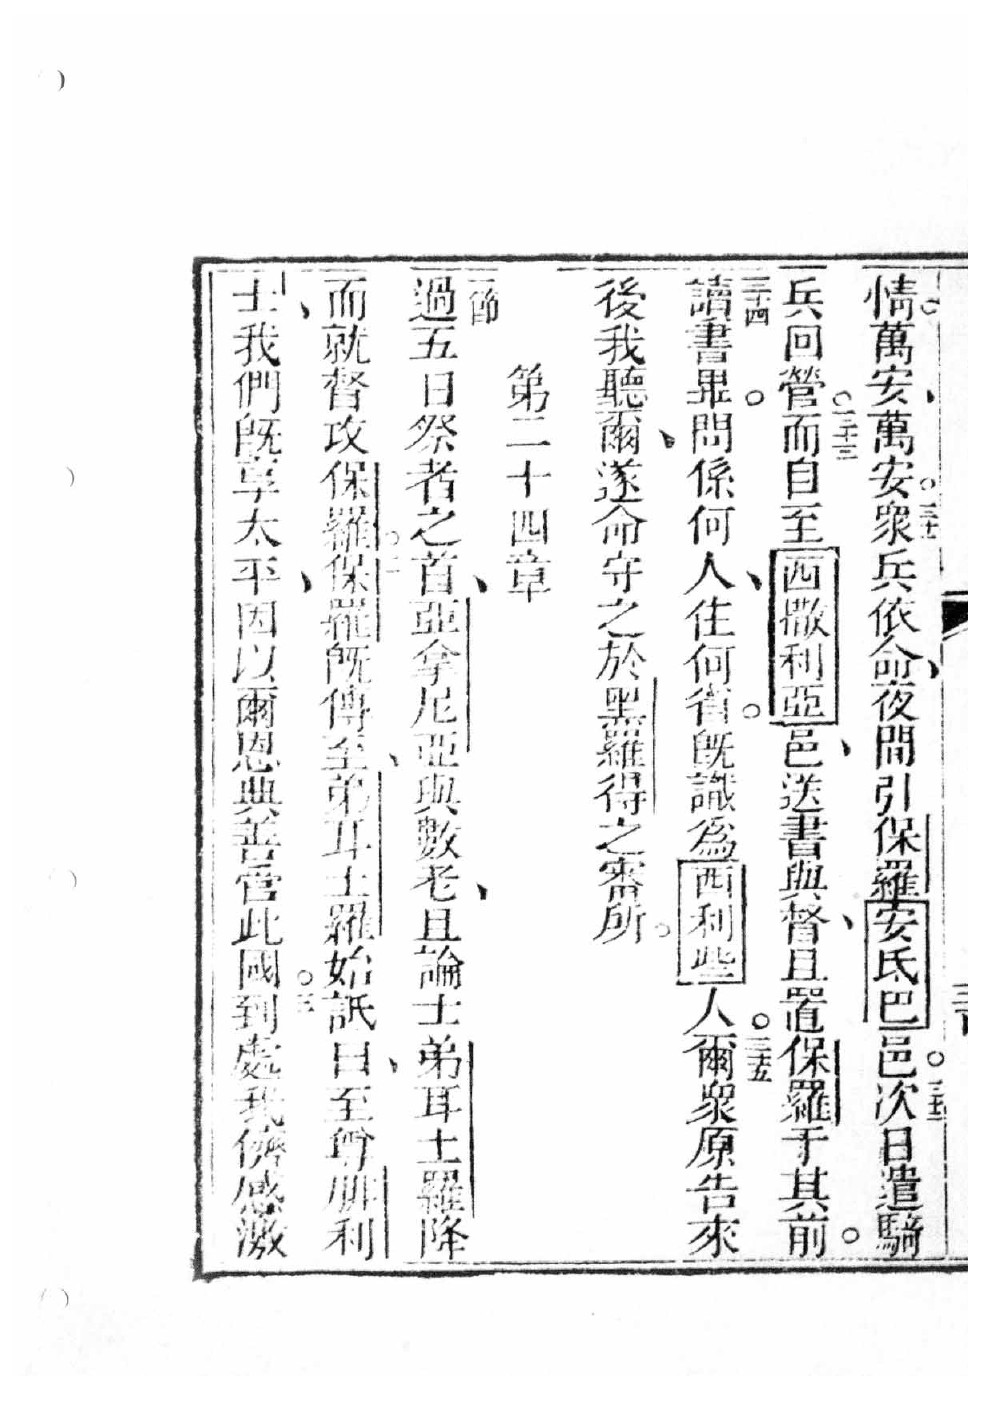 情。萬安、萬安。三十一衆兵依命、夜間引保羅安氐巴邑。三十二次日遣騎
兵回營。三十三而自至西撒利亞邑、送書與督、且置保羅于其前。
三十四讀書畢。問係何人、住何省。旣識為西利些人。三十五爾衆原告來
後我聽爾、遂命守之於黑羅得之審所。
第二十四章
一節過五日祭者之首、亞拿尼亞與數老、且論士弟耳土羅降
而就督攻保羅。二保羅旣傳至、弟耳土羅始詆曰、至尊腓利
士、我們旣享太平、因以爾恩典善管此國。三到處我儕感激